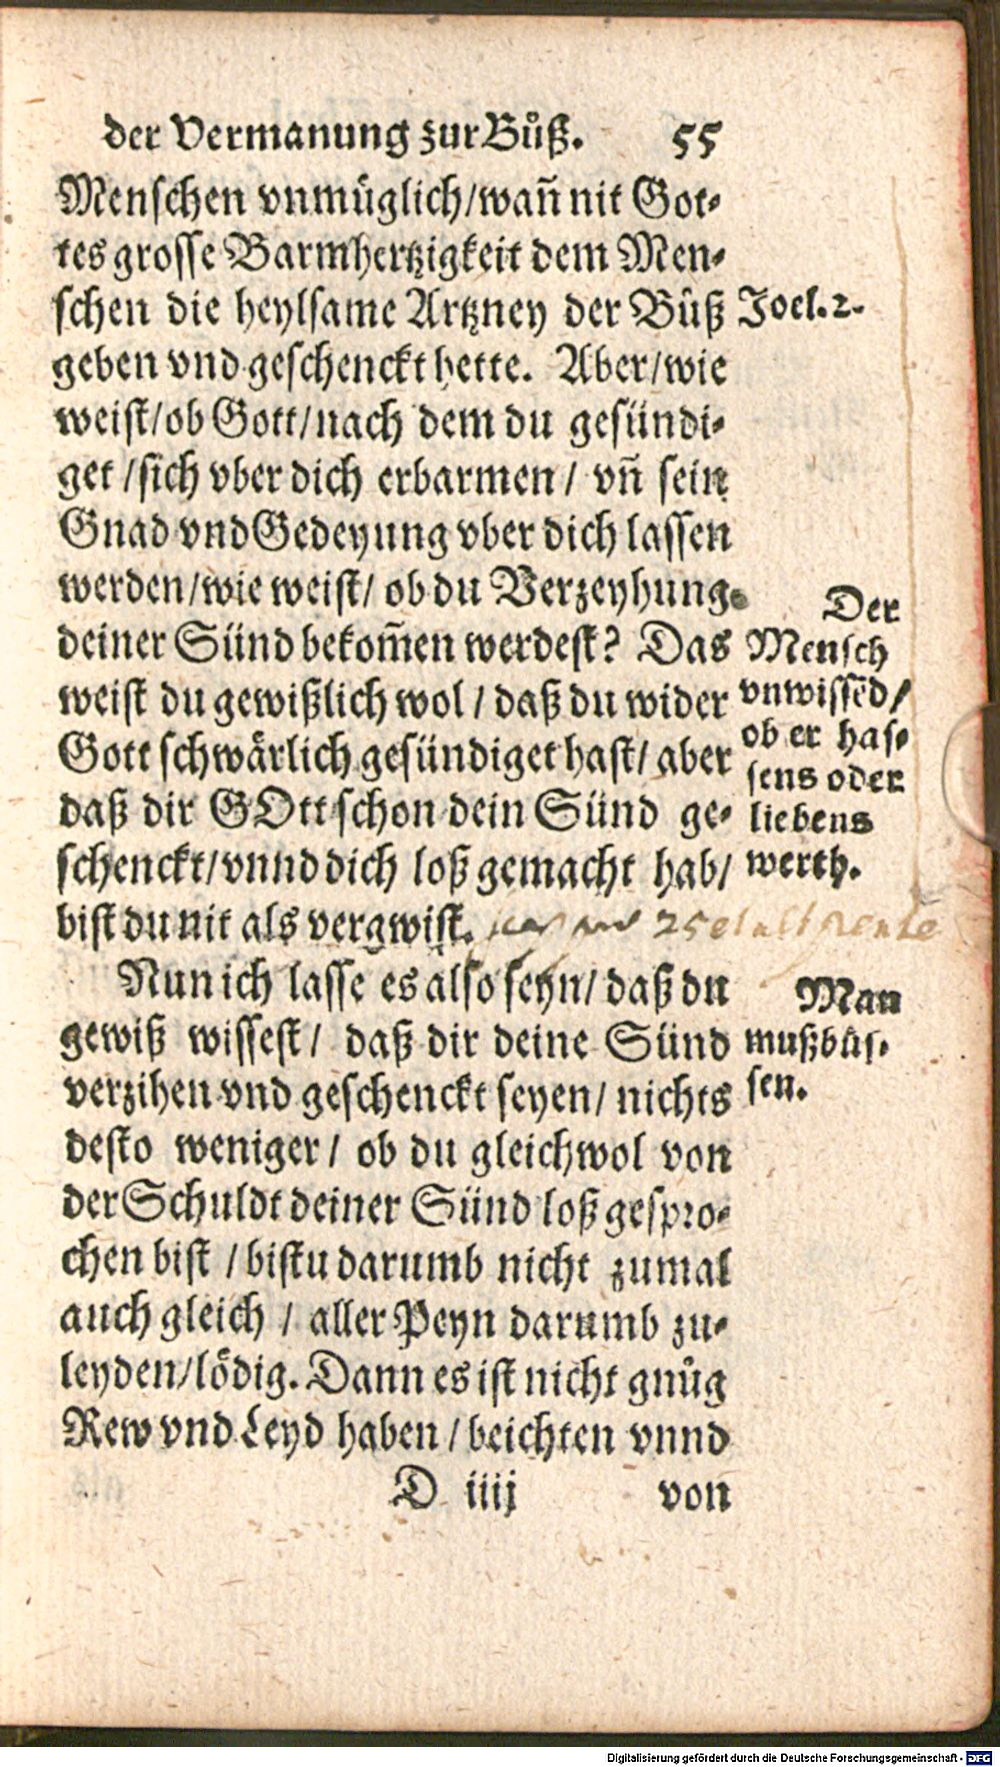 der Vermanung zur Bůß. 55
Menschen vnmüglich/wañ nit Got-
tes grosse Barmhertzigkeit dem Men-
schen die heylsame Artzney der Bůß
Joel. 2.
geben vnd geschenckt hette. Aber/wie
weist/ob Gott/nach dem du gesündi-
get/sich vber dich erbarmen/ vñ sein
Gnad vnd Gedeyung vber dich lassen
werden/wie weist/ ob du Verzeyhung
deiner Sünd bekom̃en werdest? Das
weist du gewißlich wol/ daß du wider
Gott schwärlich gesündiget hast/ aber
daß dir GOtt schon dein Sünd ge-
schenckt/vnnd dich loß gemacht hab/
bist du nit als vergwist.
Der
Mensch
vnwissẽd/
ob er has-
sens oder
liebens
werth.
Nun ich lasse es also seyn/ daß du
gewiß wissest/ daß dir deine Sünd
verzihen vnd geschenckt seyen/ nichts
desto weniger/ ob du gleichwol von
der Schuldt deiner Sünd loß gespro-
chen bist/bistu darumb nicht zumal
auch gleich/ aller Peyn darumb zu-
leyden/lödig. Dann es ist nicht gnůg
Rew vnd Leyd haben/beichten vnnd
Man
muß bůs-
sen.
D iiij von
Digitalisierung gefördert durch die Deutsche Forschungsgemeinschaft - DFG